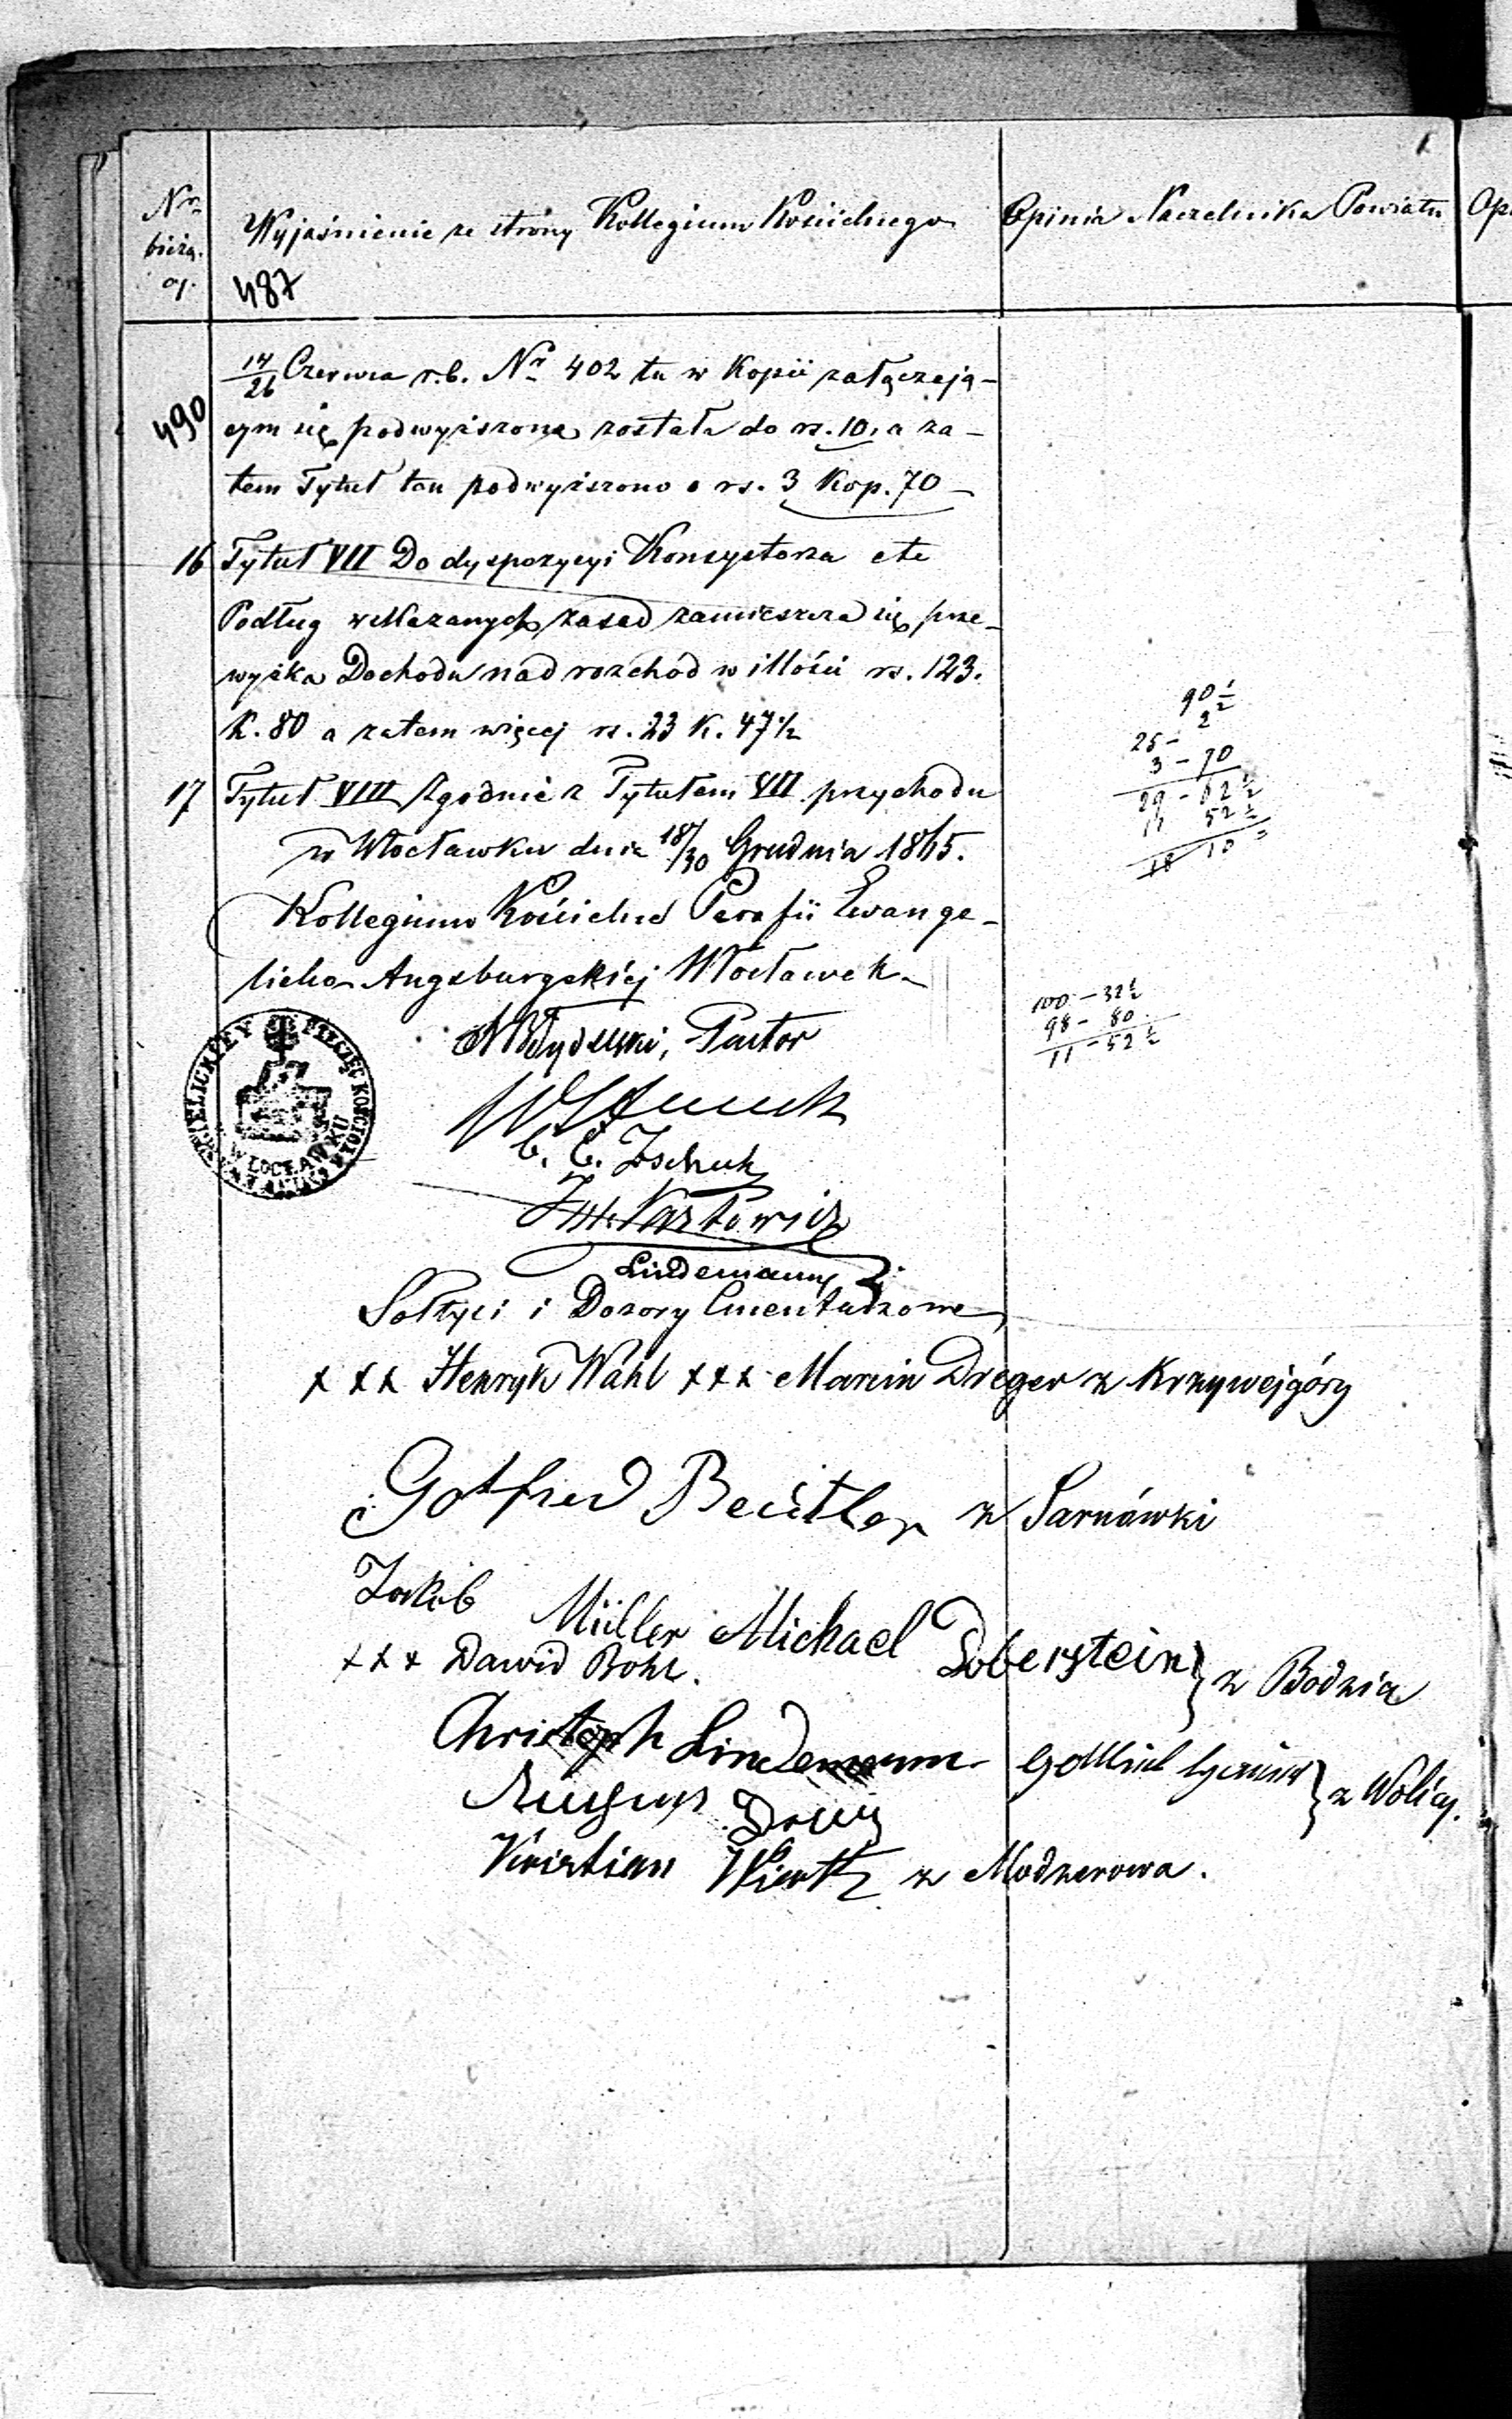 Nr bieżą.
Wyjaśnienie ze strony Kollegium Kościelnego
Opinia Naczelnika Powiatu
Op
487
490
14/26 Czerwca r.b. Nr 402 tu w Kopii załączają-
cym się podwyższoną została do rs. 10, a za-
tem Tytuł ten podwyższono o rs. 3 Kop. 70
16 Tytuł VII Do dyspozycyi Konsystorza etc
Podług wskazanych zasad zamieszcza się prze-
wyżka Dochodu nad rozchód w illości rs. 123.
K. 80 a zatem więcej rs. 23 K. 47 1/2
17 Tytuł VIII Zgodnie z Tytułem VII przychodu
w Włocławku dnia 18/30 Grudnia 1865.
Kollegium Kościelne Parafii Ewange-
licko Augsburgskiej Włocławek
90 1/2
25 - 2
3 - 70
29 - 62 1/2
11 52 1/2
18 10
100 - 32 1/2
98 - 80
11 - 52 1/2
Pastor
PIECZĘĆ KOŚCIOŁA
W WŁOCŁAWKU
Lindemann
Sołtysi i Dozory Cmentarzowe
xxx Henryk Wahl xxx Marcin Dreger z Krzywejgóry
Gotfried Beutler z Sarnówki
Jakób Müller Michael Doberstein
xxx Dawid Bohl. z Bodzia
Christoph Lindemann Gottlieb
August z Wolicy.
Kristian Wirth z Modzerowa.